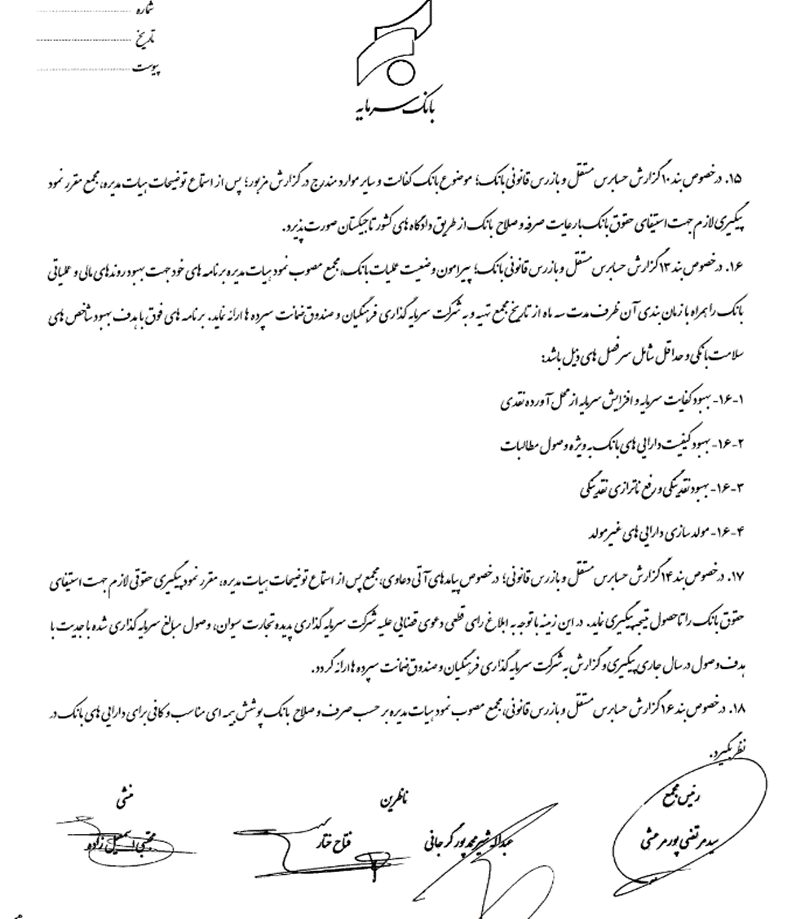 شماره
تاریخ
پیوست
بانک سرمایه
۱۵. درخصوص بند ۱۰ گزارش حسابرس مستقل و بازرس قانونی بانک؛ موضوع بانک کفالت و سایر موارد مندرج در گزارش مزبور؛ پس از استماع توضیحات هیات مدیره، مجمع مقرر نمود
پیگیری لازم جهت استیفای حقوق بانک با رعایت صرفه و صلاح بانک از طریق دادگاه های کشور تاجیکستان صورت پذیرد.
۱۶. درخصوص بند ۱۳ گزارش حسابرس مستقل و بازرس قانونی بانک؛ پیرامون وضعیت عملیات بانک، مجمع مصوب نمود هیات مدیره برنامه های خود جهت بهبود روندهای مالی و عملیاتی
بانک را همراه با زمان بندی آن ظرف مدت سه ماه از تاریخ مجمع تهیه و به شرکت سرمایه گذاری فرهنگیان و صندوق ضمانت سپرده ها ارائه نماید. برنامه های فوق با هدف بهبود شاخص های
سلامت بانکی و حداقل شامل سرفصل های ذیل باشد:
۱-۱۶- بهبود کفایت سرمایه و افزایش سرمایه از محل آورده نقدی
۲-۱۶- بهبود کیفیت دارایی های بانک به ویژه وصول مطالبات
۳-۱۶- بهبود نقدینگی و رفع ناترازی نقدینگی
۴-۱۶- مولد سازی دارایی های غیرمولد
۱۷. درخصوص بند ۱۴ گزارش حسابرس مستقل و بازرس قانونی؛ درخصوص پیامدهای آتی دعاوی، مجمع پس از استماع توضیحات هیات مدیره، مقرر نمود پیگیری حقوقی لازم جهت استیفای
حقوق بانک را تا حصول نتیجه پیگیری نماید. در این زمینه با توجه به ابلاغ رای قطعی دعوی قضایی علیه شرکت سرمایه گذاری پدیده تجارت سیوان، وصول مبالغ سرمایه گذاری شده با جدیت با
هدف وصول در سال جاری پیگیری و گزارش به شرکت سرمایه گذاری فرهنگیان و صندوق ضمانت سپرده ها ارائه گردد.
۱۸. درخصوص بند ۱۶ گزارش حسابرس مستقل و بازرس قانونی، مجمع مصوب نمود هیات مدیره بر حسب صرف و صلاح بانک پوشش بیمه ای مناسب و کافی برای دارایی های بانک در
نظر بگیرد.
رئیس مجمع ناظرین منشی
سید مرتضی پورمرعشی عبداله شیرمحمدپور گرجانی فتاح ختار مجتبی اسمعیل زاده